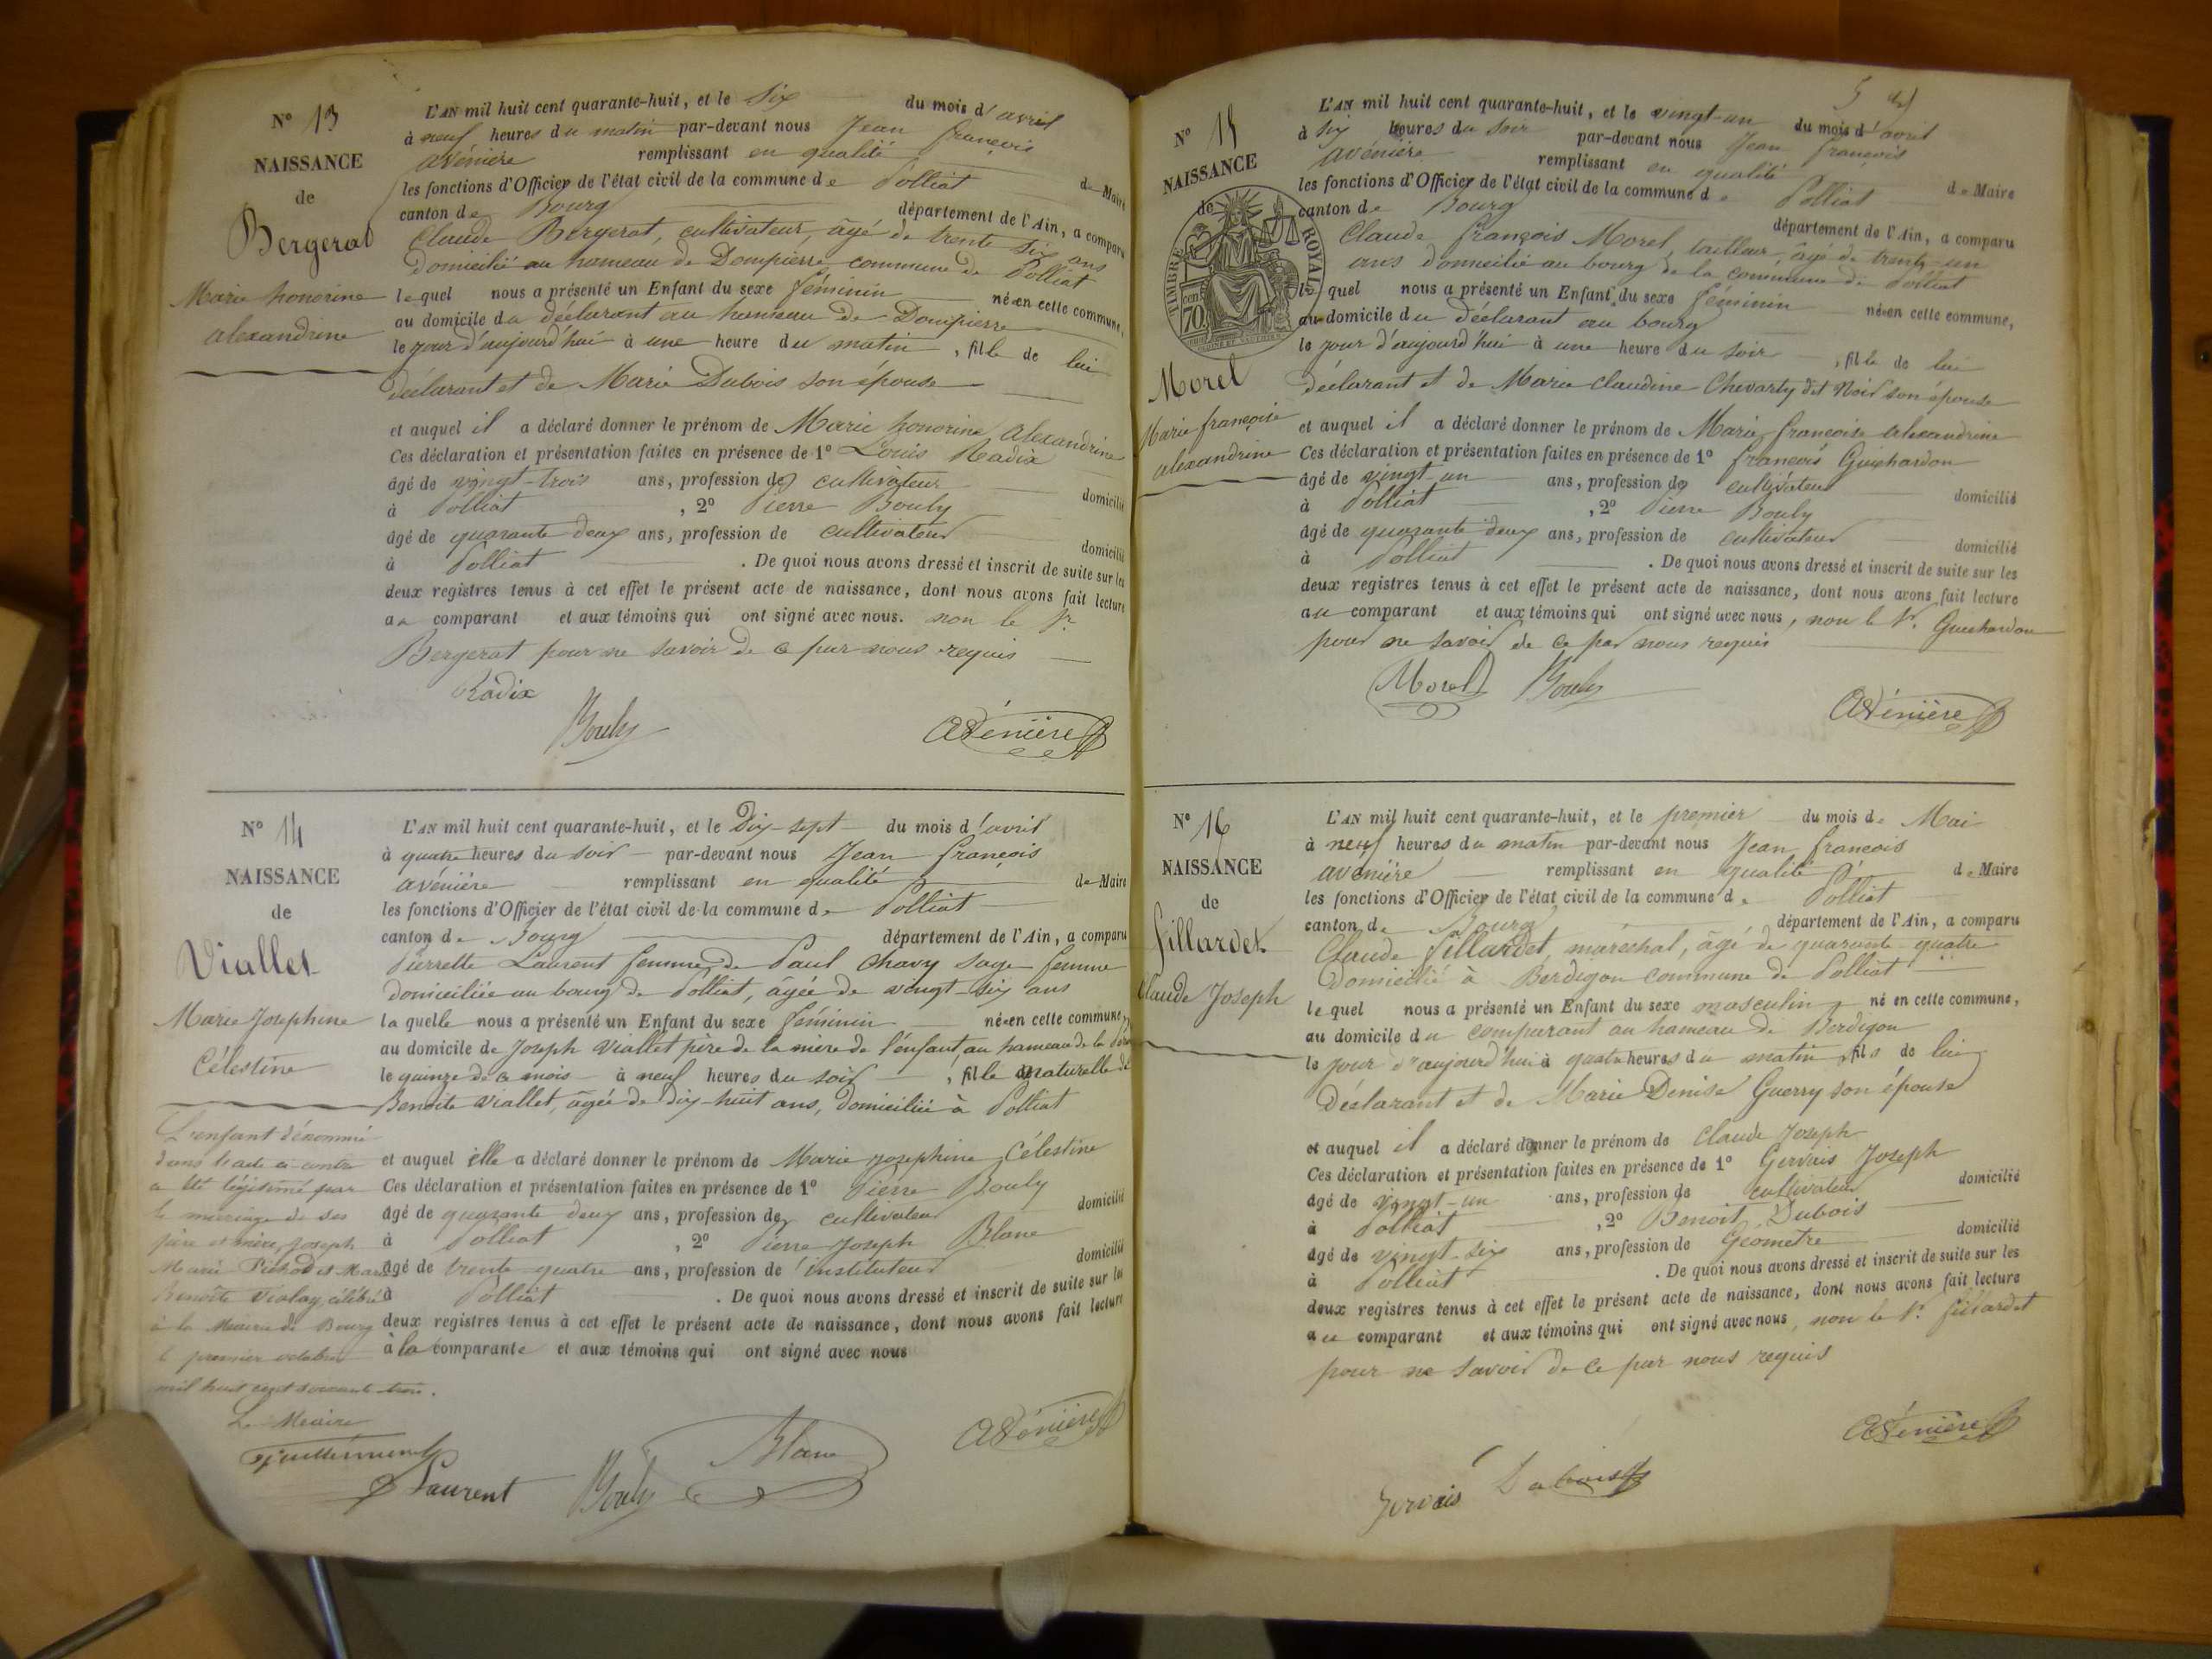 N° 13
NAISSANCE
de
Bergerat
Marie honorine
alexandrine
L'AN mil huit cent quarante-huit, et le Six du mois d'avril
à neuf heures du matin par-devant nous Jean françois
avénière remplissant en qualité de Maire
les fonctions d'Officier de l'état civil de la commune de Polliat
canton de Bourg département de l'Ain, a comparu
Claude Bergerat, cultivateur, âgé de trente six ans
domicilié au hameau de Dompierre commune de Polliat
lequel nous a présenté un Enfant du sexe féminin née en cette commune,
au domicile du déclarant au hameau de Dompierre
le jour d'aujourd'hui à une heure du matin, fille de lui
déclarant et de Marie Dubois son épouse
et auquel il a déclaré donner le prénom de Marie honorine alexandrine
Ces déclaration et présentation faites en présence de 1° Louis Radix
âgé de vingt-trois ans, profession de cultivateur domicilié
à Polliat, 2° Pierre Bouly
âgé de quarante deux ans, profession de cultivateur domicilié
à Polliat. De quoi nous avons dressé et inscrit de suite sur les
deux registres tenus à cet effet le présent acte de naissance, dont nous avons fait lecture
au comparant et aux témoins qui ont signé avec nous. non le Sr.
Bergerat pour ne savoir de ce par nous requis
Radix
Bouly
Avénière
N° 14
NAISSANCE
de
Viallet
Marie Josephine
Célestine
L'enfant dénommé
dans l'acte ci-contre
a été légitimé par
le mariage de ses
père et mère, Joseph
Marie et Marie
Benoîte Violay célébré
à la Mairie de Bourg
le premier octobre
mil huit cent soixante trois.
Le Maire
L'AN mil huit cent quarante-huit, et le Dix-sept du mois d'avril
à quatre heures du soir par-devant nous Jean françois
avénière remplissant en qualité de Maire
les fonctions d'Officier de l'état civil de la commune de Polliat
canton de Bourg département de l'Ain, a comparu
Pierrette Laurent femme de Paul Chavy sage femme
domiciliée au bourg de Polliat, âgée de vingt-six ans
laquelle nous a présenté un Enfant du sexe féminin née en cette commune,
au domicile de Joseph Viallet père de la mère de l'enfant, au hameau de la
le quinze de ce mois à neuf heures du soir, fille naturelle de
Benoîte Viallet, âgée de dix-huit ans, domiciliée à Polliat
et auquel elle a déclaré donner le prénom de Marie josephine Célestine
Ces déclaration et présentation faites en présence de 1° Pierre Bouly
âgé de quarante deux ans, profession de cultivateur domicilié
à Polliat, 2° Pierre Joseph Blanc
âgé de trente quatre ans, profession de instituteur domicilié
à Polliat. De quoi nous avons dressé et inscrit de suite sur les
deux registres tenus à cet effet le présent acte de naissance, dont nous avons fait lecture
à la comparante et aux témoins qui ont signé avec nous
Laurent
Bouly
Blanc
Avénière
N° 15
NAISSANCE
de
TIMBRE ROYAL
70 cent
Morel
Marie françoise
alexandrine
5
L'AN mil huit cent quarante-huit, et le vingt-un du mois d'avril
à six heures du soir par-devant nous Jean françois
avénière remplissant en qualité de Maire
les fonctions d'Officier de l'état civil de la commune de Polliat
canton de Bourg département de l'Ain, a comparu
Claude françois Morel, tailleur, âgé de trente-un
ans domicilié au bourg de la commune de Polliat
lequel nous a présenté un Enfant du sexe féminin née en cette commune,
au domicile du déclarant au bourg
le jour d'aujourd'hui à une heure du soir, fille de lui
déclarant et de Marie Claudine Chevarly dit Noir son épouse
et auquel il a déclaré donner le prénom de Marie françoise alexandrine
Ces déclaration et présentation faites en présence de 1° françois Guichardon
âgé de vingt-un ans, profession de cultivateur domicilié
à Polliat, 2° Pierre Bouly
âgé de quarante deux ans, profession de cultivateur domicilié
à Polliat. De quoi nous avons dressé et inscrit de suite sur les
deux registres tenus à cet effet le présent acte de naissance, dont nous avons fait lecture
au comparant et aux témoins qui ont signé avec nous, non le Sr. Guichardon
pour ne savoir de ce par nous requis
Morel
Bouly
Avénière
N° 16
NAISSANCE
de
fillardet
Claude Joseph
L'AN mil huit cent quarante-huit, et le premier du mois de Mai
à neuf heures du matin par-devant nous Jean françois
avénière remplissant en qualité de Maire
les fonctions d'Officier de l'état civil de la commune de Polliat
canton de Bourg département de l'Ain, a comparu
Claude fillardet, maréchal, âgé de quarante-quatre
Domicilié à Berdigon commune de Polliat
lequel nous a présenté un Enfant du sexe masculin né en cette commune,
au domicile du comparant au hameau de Berdigon
le jour d'aujourd'hui à quatre heures du matin, fils de lui
Déclarant et de Marie Denise Guerry son épouse
et auquel il a déclaré donner le prénom de Claude Joseph
Ces déclaration et présentation faites en présence de 1° Gervais Joseph
âgé de vingt-un ans, profession de cultivateur domicilié
à Polliat, 2° Benoit Dubois
âgé de vingt-six ans, profession de Géomètre domicilié
à Polliat. De quoi nous avons dressé et inscrit de suite sur les
deux registres tenus à cet effet le présent acte de naissance, dont nous avons fait lecture
au comparant et aux témoins qui ont signé avec nous, non le Sr. fillardet
pour ne savoir de ce par nous requis
Avénière
Gervais
Dubois